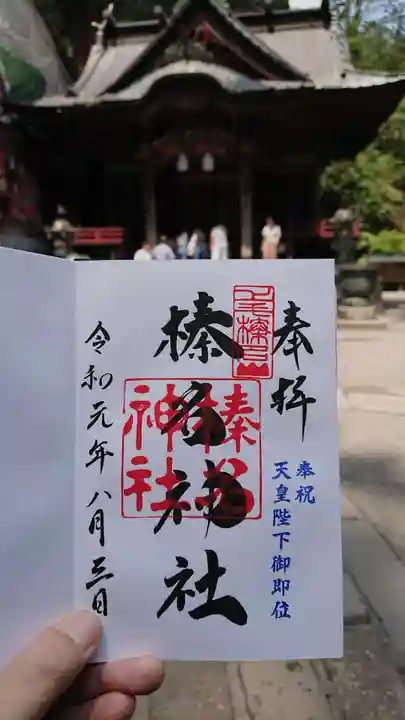 奉拝
奉祝
天皇陛下御即位
榛名神社
榛名
神社
令和元年八月三日